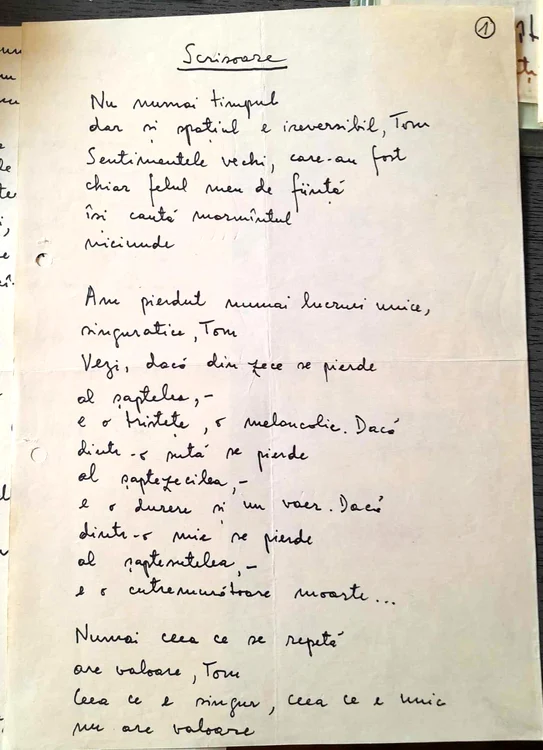 1
Scrisoare
Nu numai timpul
dar si spațiul e ireversibil, Tom
Sentimentele vechi, care-au fost
chiar felul meu de ființă
îsi caută mormîntul
niciunde
Am pierdut numai lucruri unice,
singuratice, Tom
Vezi, dacă din zece se pierde
al șaptelea, -
e o tristețe, o melancolie. Dacă
dintr-o sută se pierde
al șaptezecilea, -
e o durere si un vaer. Dacă
dintr-o mie se pierde
al șaptesutelea, -
e o cutremurătoare moarte...
Numai ceea ce se repetă
are valoare, Tom
Ceea ce e singur, ceea ce e unic
nu are valoare